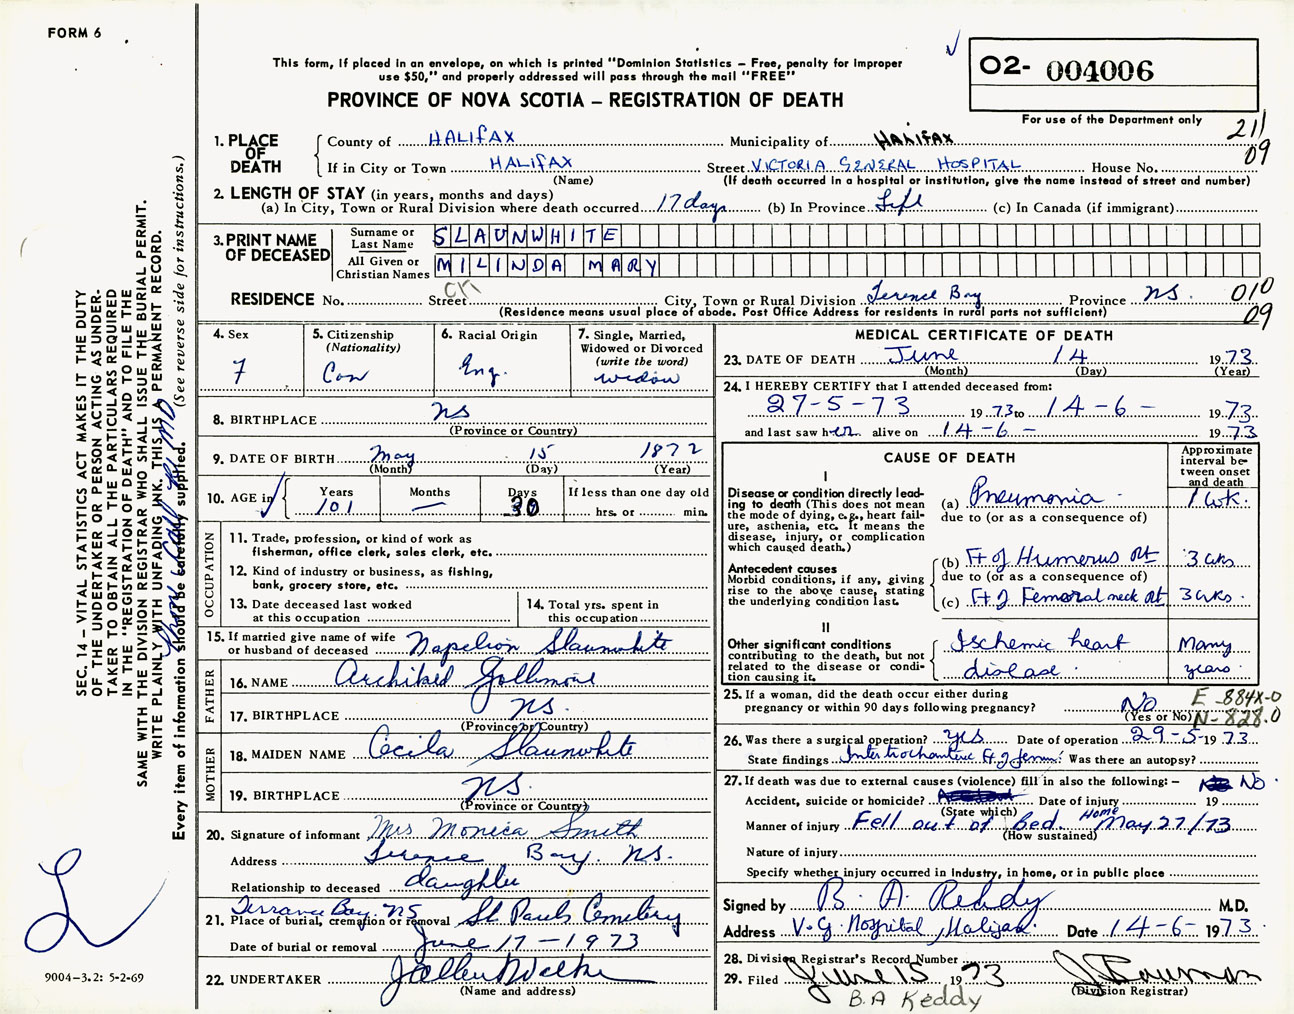 FORM 6
This form, if placed in an envelope, on which is printed "Dominion Statistics – Free, penalty for improper
use $50," and properly addressed will pass through the mail "FREE"
PROVINCE OF NOVA SCOTIA – REGISTRATION OF DEATH
O2- 004006
For use of the Department only
211
09
1. PLACE OF DEATH
County of HALIFAX Municipality of HALIFAX
If in City or Town HALIFAX Street VICTORIA GENERAL HOSPITAL House No.
(Name) (If death occurred in a hospital or institution, give the name instead of street and number)
2. LENGTH OF STAY (in years, months and days)
(a) In City, Town or Rural Division where death occurred 17 days (b) In Province Life (c) In Canada (if immigrant)
3. PRINT NAME OF DECEASED
Surname or Last Name SLAUNWHITE
All Given or Christian Names MILINDA MARY
RESIDENCE No. Street City, Town or Rural Division Terence Bay Province NS. 010
09
(Residence means usual place of abode. Post Office Address for residents in rural parts not sufficient)
4. Sex
F
5. Citizenship
(Nationality)
Can
6. Racial Origin
Eng.
7. Single, Married,
Widowed or Divorced
(write the word)
widow
8. BIRTHPLACE NS
(Province or Country)
9. DATE OF BIRTH May 15 1872
(Month) (Day) (Year)
10. AGE in
Years Months Days If less than one day old
101 — 30 hrs. or min.
OCCUPATION
11. Trade, profession, or kind of work as
fisherman, office clerk, sales clerk, etc.
12. Kind of industry or business, as fishing,
bank, grocery store, etc.
13. Date deceased last worked
at this occupation
14. Total yrs. spent in
this occupation
15. If married give name of wife
or husband of deceased Napelion Slaunwhite
FATHER
16. NAME Archibed Gollimore
17. BIRTHPLACE NS.
(Province or Country)
MOTHER
18. MAIDEN NAME Cecila Slaunwhite
19. BIRTHPLACE NS.
(Province or Country)
20. Signature of informant Mrs Monica Smith
Address Terence Bay. NS.
Relationship to deceased daughter
Terrance Bay, NS
21. Place of burial, cremation or removal St. Pauls Cemetery
Date of burial or removal June 17 – 1973
22. UNDERTAKER
(Name and address)
MEDICAL CERTIFICATE OF DEATH
23. DATE OF DEATH June 14 1973
(Month) (Day) (Year)
24. I HEREBY CERTIFY that I attended deceased from:
27-5-73 1973 to 14-6- 1973
and last saw her alive on 14-6- 1973
CAUSE OF DEATH
Approximate
interval be-
tween onset
and death
I
Disease or condition directly lead-
ing to death (This does not mean
the mode of dying, e.g., heart fail-
ure, asthenia, etc. It means the
disease, injury, or complication
which caused death.)
(a) Pneumonia 1 wk.
due to (or as a consequence of)
Antecedent causes
Morbid conditions, if any, giving
rise to the above cause, stating
the underlying condition last.
(b) # of Humerus Rt 3 wks
due to (or as a consequence of)
(c) # of Femoral neck Rt 3 wks.
II
Other significant conditions
contributing to the death, but not
related to the disease or condi-
tion causing it.
Ischemic heart Many
disease. years.
25. If a woman, did the death occur either during
pregnancy or within 90 days following pregnancy? No
(Yes or No)
E-884X-0
N-828.0
26. Was there a surgical operation? yes Date of operation 29-5-1973
State findings Intertrochanteric # of femur. Was there an autopsy?
27. If death was due to external causes (violence) fill in also the following:– No
Accident, suicide or homicide? Date of injury 19
(State which)
Manner of injury Fell out of bed. Home May 27/73
(How sustained)
Nature of injury
Specify whether injury occurred in industry, in home, or in public place
Signed by B. A. Reddy M.D.
Address V.G. Hospital, Halifax. Date 14-6-1973.
28. Division Registrar's Record Number
29. Filed June 15 1973
(Division Registrar)
B.A Keddy
SEC. 14 – VITAL STATISTICS ACT MAKES IT THE DUTY
OF THE UNDERTAKER OR PERSON ACTING AS UNDER-
TAKER TO OBTAIN ALL THE PARTICULARS REQUIRED
IN THE "REGISTRATION OF DEATH" AND TO FILE THE
SAME WITH THE DIVISION REGISTRAR WHO SHALL ISSUE THE BURIAL PERMIT.
WRITE PLAINLY WITH UNFADING INK. THIS IS A PERMANENT RECORD.
Every item of information should be carefully supplied. (See reverse side for instructions.)
9004–3.2: 5-2-69